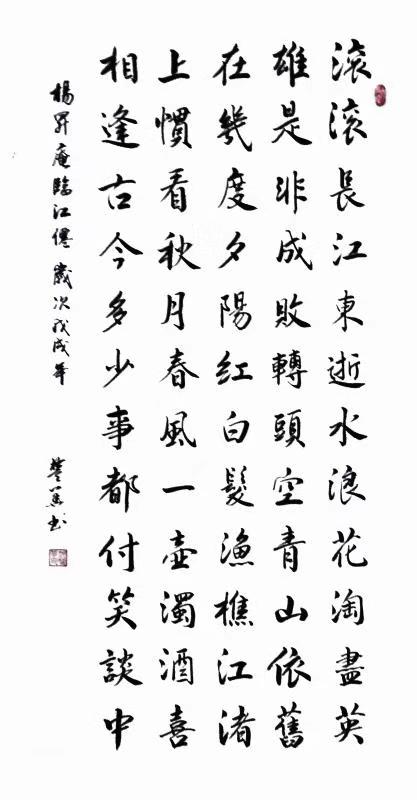 滚滚長江東逝水浪花淘盡英
雄是非成敗轉頭空青山依舊
在幾度夕陽紅白髮漁樵江渚
上慣看秋月春風一壺濁酒喜
相逢古今多少事都付笑談中
楊昇庵臨江僊 歲次戊戌年
書